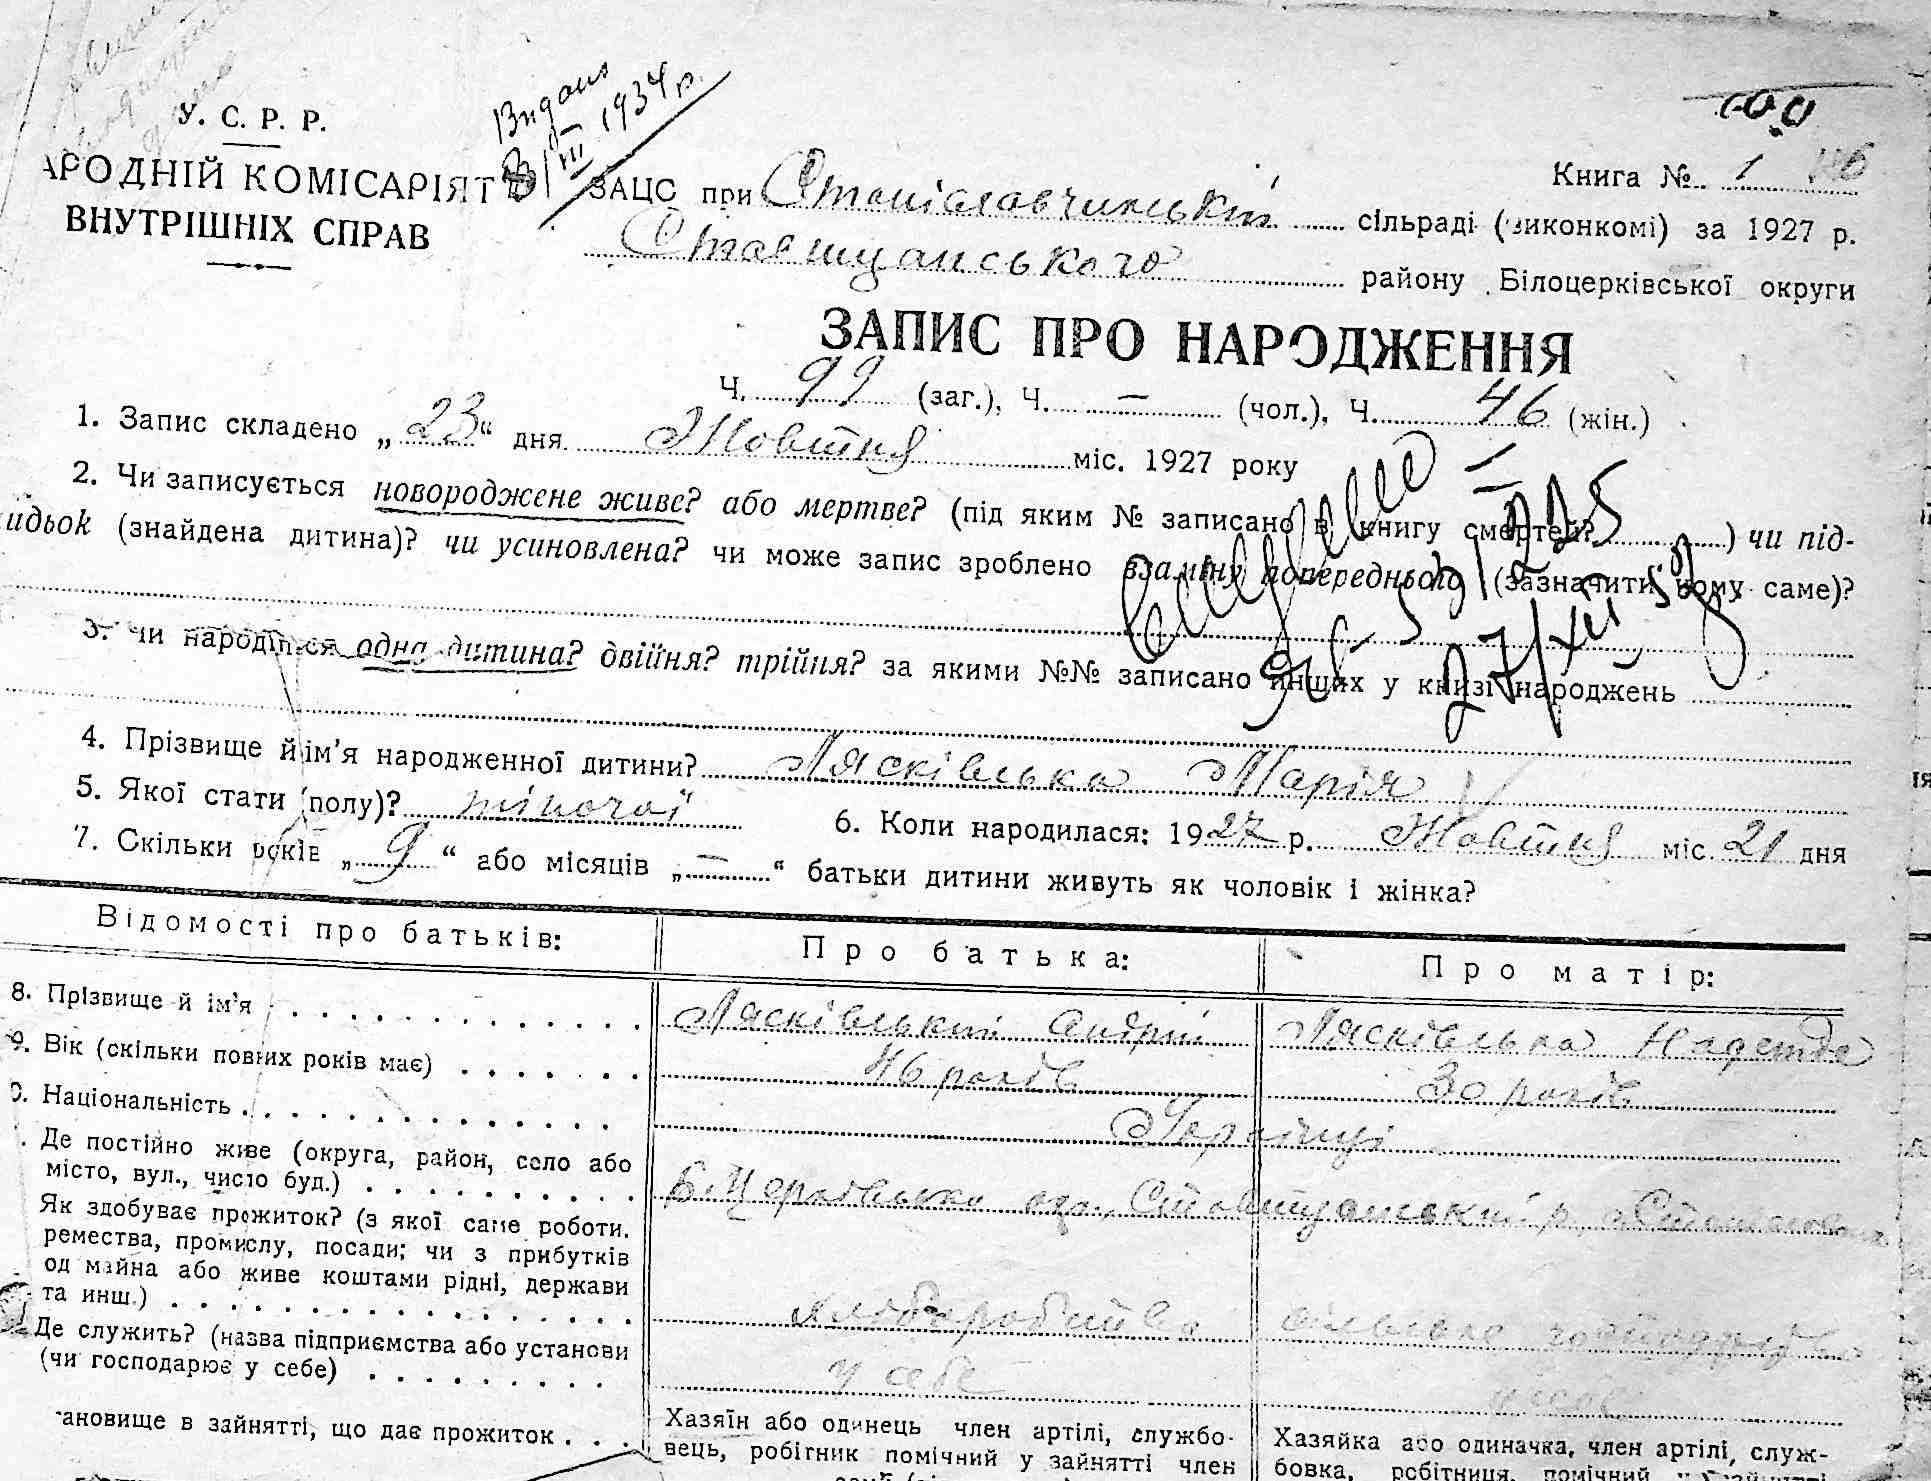 У. С. Р. Р.
АРОДНІЙ КОМІСАРІЯТ
ВНУТРІШНІХ СПРАВ
Видано
8/III 1934 р.
100
Книга № 1
ЗАЦС при Станіславчинській сільраді (виконкомі) за 1927 р.
Ставищанського району Білоцерківської округи
ЗАПИС ПРО НАРОДЖЕННЯ
Ч. 99 (заг.), Ч. — (чол.), Ч. 46 (жін.)
1. Запис складено „23“ дня Жовтня міс. 1927 року
2. Чи записується новороджене живе? або мертве? (під яким № записано в книгу смертей? ) чи під-
идьок (знайдена дитина)? чи усиновлена? чи може запис зроблено взаміну попереднього (зазначити кому саме)?
3. Чи народілася одна дитина? двійня? трійня? за якими №№ записано инших у книзі народжень
4. Прізвище й ім’я народженної дитини? Лясківська Марія
5. Якої стати (полу)? жіночої 6. Коли народилася: 1927 р. Жовтня міс. 21 дня
7. Скільки років „9“ або місяців „—“ батьки дитини живуть як чоловік і жінка?
Відомості про батьків: Про батька: Про матір:
8. Прізвище й ім’я Лясківський Андрій Лясківська Надежда
9. Вік (скільки повних років має) 46 років 30 років
0. Національність Українці
Де постійно живе (округа, район, село або
місто, вул., число буд.) Б Церківська окр., Ставищанський р.
Як здобуває прожиток? (з якої саме роботи.
ремества, промислу, посади; чи з прибутків
од майна або живе коштами рідні, держави
та инш.) хліборобство сільське господарство
Де служить? (назва підприємства або установи
(чи господарює у себе) у себе у себе
тановище в зайнятті, що дає прожиток
Хазяїн або одинець член артілі, службо-
вець, робітник помічний у зайнятті член
Хазяйка або одиначка, член артілі, служ-
бовка, робітниця, помічний у зайнятті